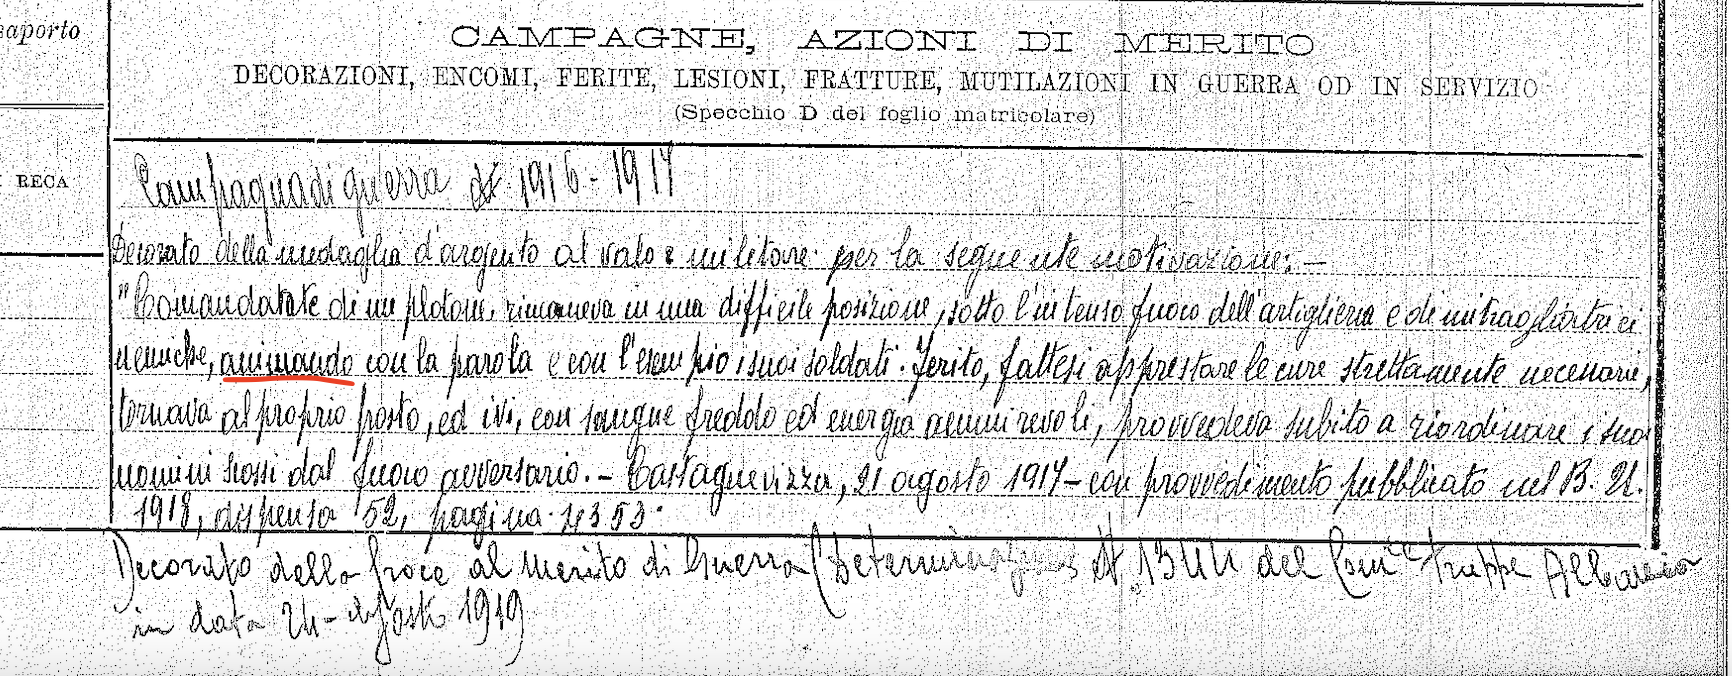 saporto
RECA
CAMPAGNE, AZIONI DI MERITO
DECORAZIONI, ENCOMI, FERITE, LESIONI, FRATTURE, MUTILAZIONI IN GUERRA OD IN SERVIZIO
(Specchio D del foglio matricolare)
Campagna di guerra 1916-1917
Decorato della medaglia d'argento al valore militare per la seguente motivazione: —
"Comandatate di un plotone, rimaneva in una difficile posizione, sotto l'intenso fuoco dell'artiglieria e di mitragliatrici
nemiche, animando con la parola e con l'esempio i suoi soldati. Ferito, fattesi apprestare le cure strettamente necessarie,
tornava al proprio posto, ed ivi, con sangue freddo ed energia ammirevoli, provvedeva subito a riordinare i suoi
uomini scossi dal fuoco avversario. - Castagnevizza, 21 agosto 1917 - con provvedimento pubblicato nel B. U.
1918, dispensa 52, pagina 4353.
Decorato della Croce al Merito di Guerra (Determinazione N. 1344 del Com. Truppe Albania
in data 24- Agosto 1919